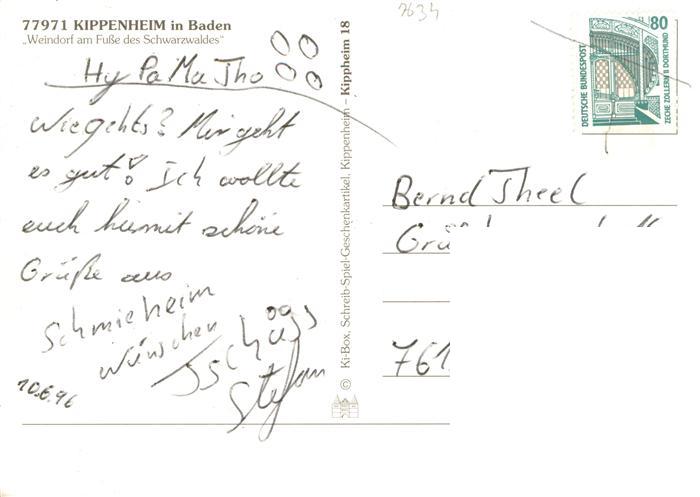 7634
77971 KIPPENHEIM in Baden
„Weindorf am Fuße des Schwarzwaldes“
Hy Pa Ma Tho
Wie gehts? Mir geht
es gut! Ich wollte
euch hiermit schöne
Grüße aus
Schmieheim
wünschen
Tschüss
Stefan
10.6.96
© Ki-Box, Schreib-Spiel-Geschenkartikel, Kippenheim – Kippheim 18
80
DEUTSCHE BUNDESPOST
ZECHE ZOLLERN II DORTMUND
Bernd Theel
761